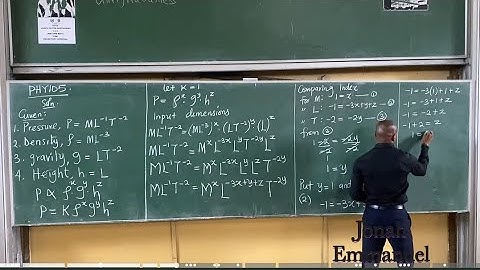 PHY105
Soln
Given:
1. Pressure, P = ML⁻¹T⁻²
2. Density, ρ = ML⁻³
3. gravity, g = LT⁻²
4. Height, h = L
P ∝ ρˣgʸhᶻ
P = Kρˣgʸhᶻ
let K = 1
P = ρˣgʸhᶻ
Input dimensions
ML⁻¹T⁻² = (ML⁻³)ˣ(LT⁻²)ʸ(L)ᶻ
ML⁻¹T⁻² = MˣL⁻³ˣLʸT⁻²ʸLᶻ
ML⁻¹T⁻² = MˣL⁻³ˣ⁺ʸ⁺ᶻT⁻²ʸ
ML⁻¹T⁻² = MˣL⁻³ˣ⁺ʸ⁺ᶻT⁻²ʸ
Comparing Index
For M: 1 = x — ①
" L: -1 = -3x+y+z — ②
" T: -2 = -2y — ③
from ③
1 = y
Put y = 1 and
(2)
-1 = -3x+
-1 = -3(1)+1+z
-1 = -3+1+z
-1 = -2+z
-1+2 = z
Jonah
Emmanuel